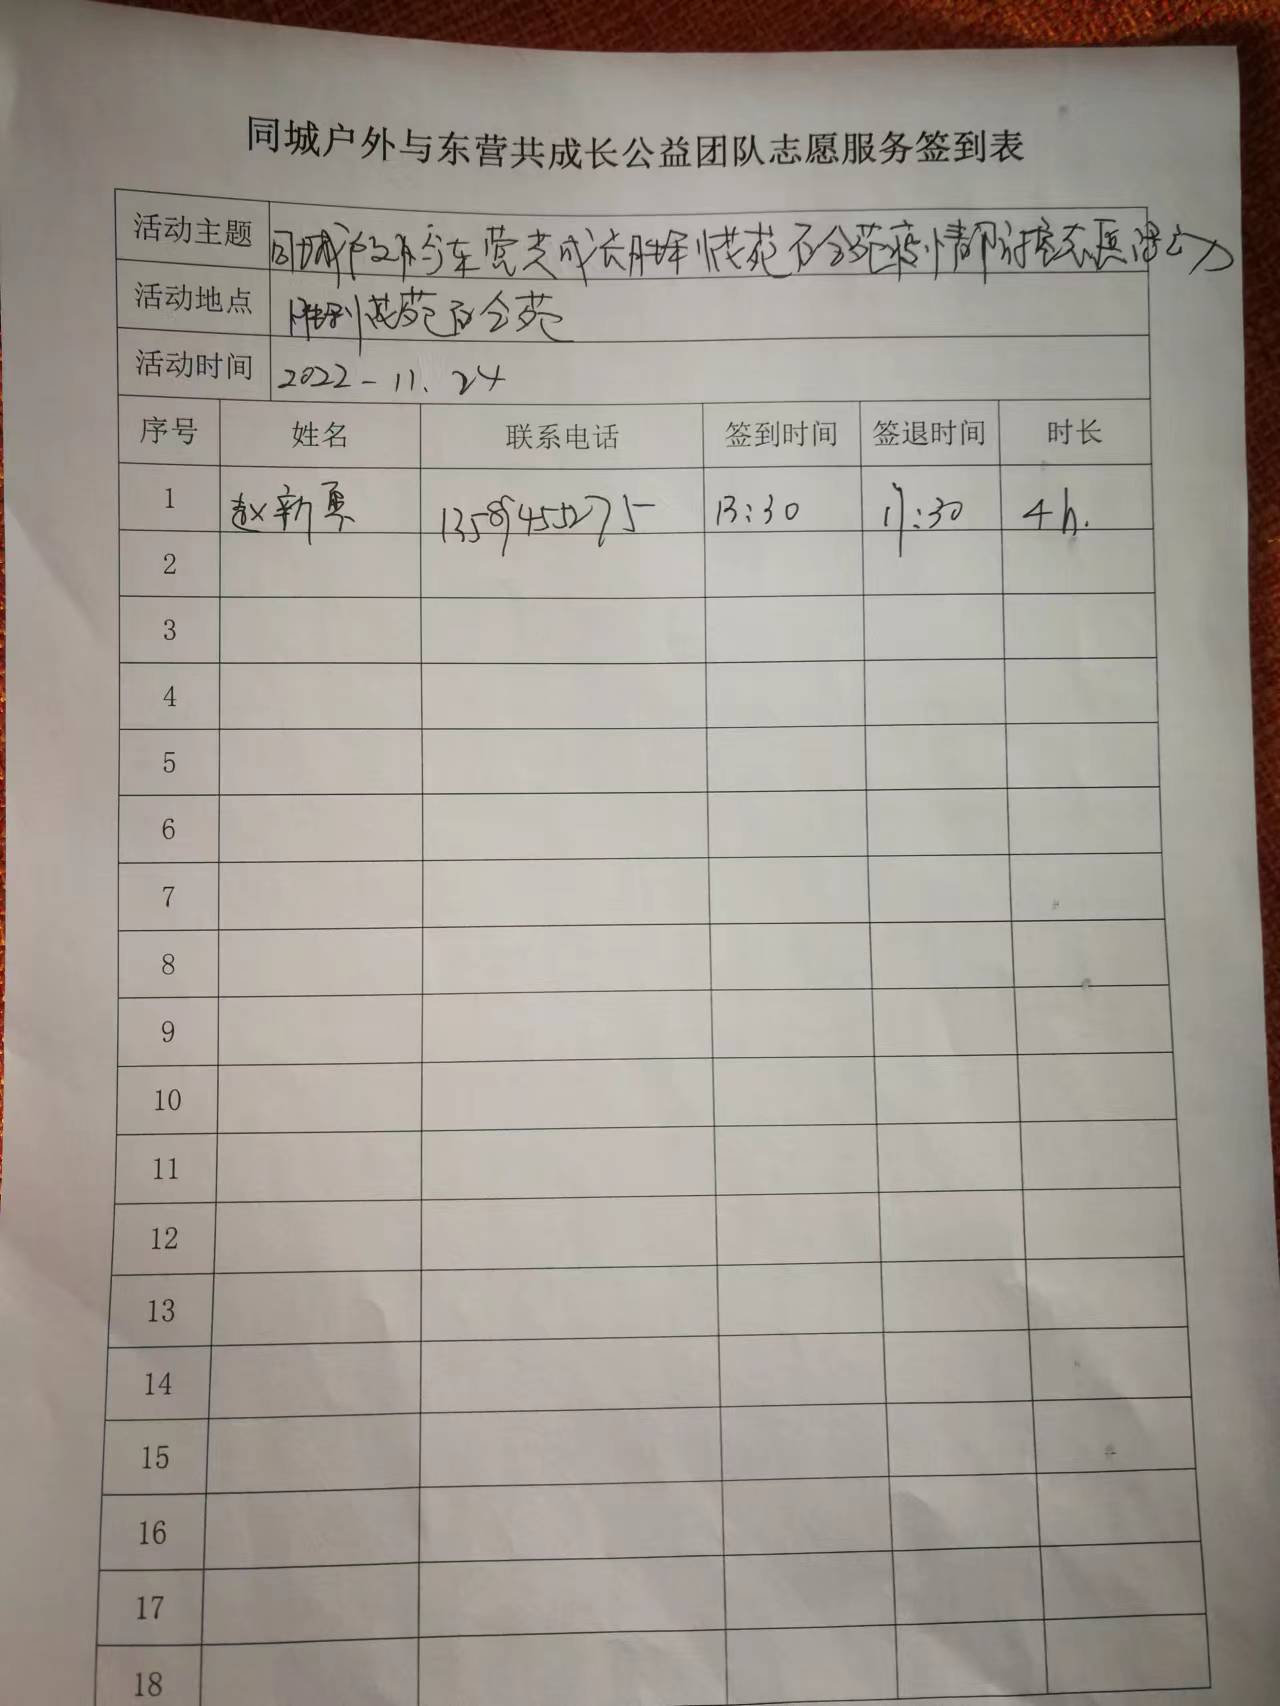 同城户外与东营共成长公益团队志愿服务签到表
活动主题 同城户外与东营共成长胜利花苑百合苑疫情防控志愿活动
活动地点 胜利花苑百合苑
活动时间 2022-11.24
序号 姓名 联系电话 签到时间 签退时间 时长
1 赵新 13589455275 13:30 17:30 4h.
2
3
4
5
6
7
8
9
10
11
12
13
14
15
16
17
18